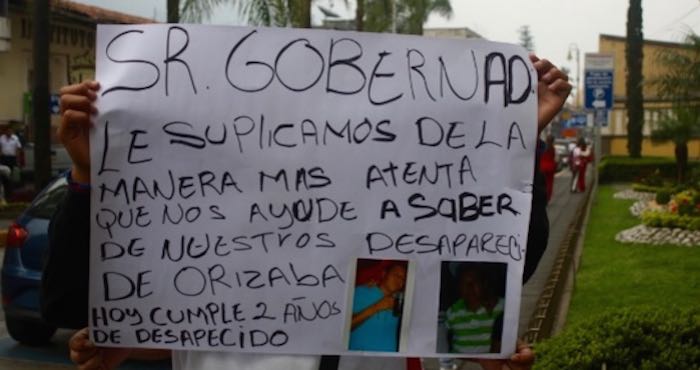 SR. GOBERNAD.
LE SUPLICAMOS DE LA
MANERA MAS ATENTA
QUE NOS AYUDE A SABER
DE NUESTROS DESAPARECI-
DE ORIZABA
HOY CUMPLE 2 AÑOS
DE DESAPECIDO